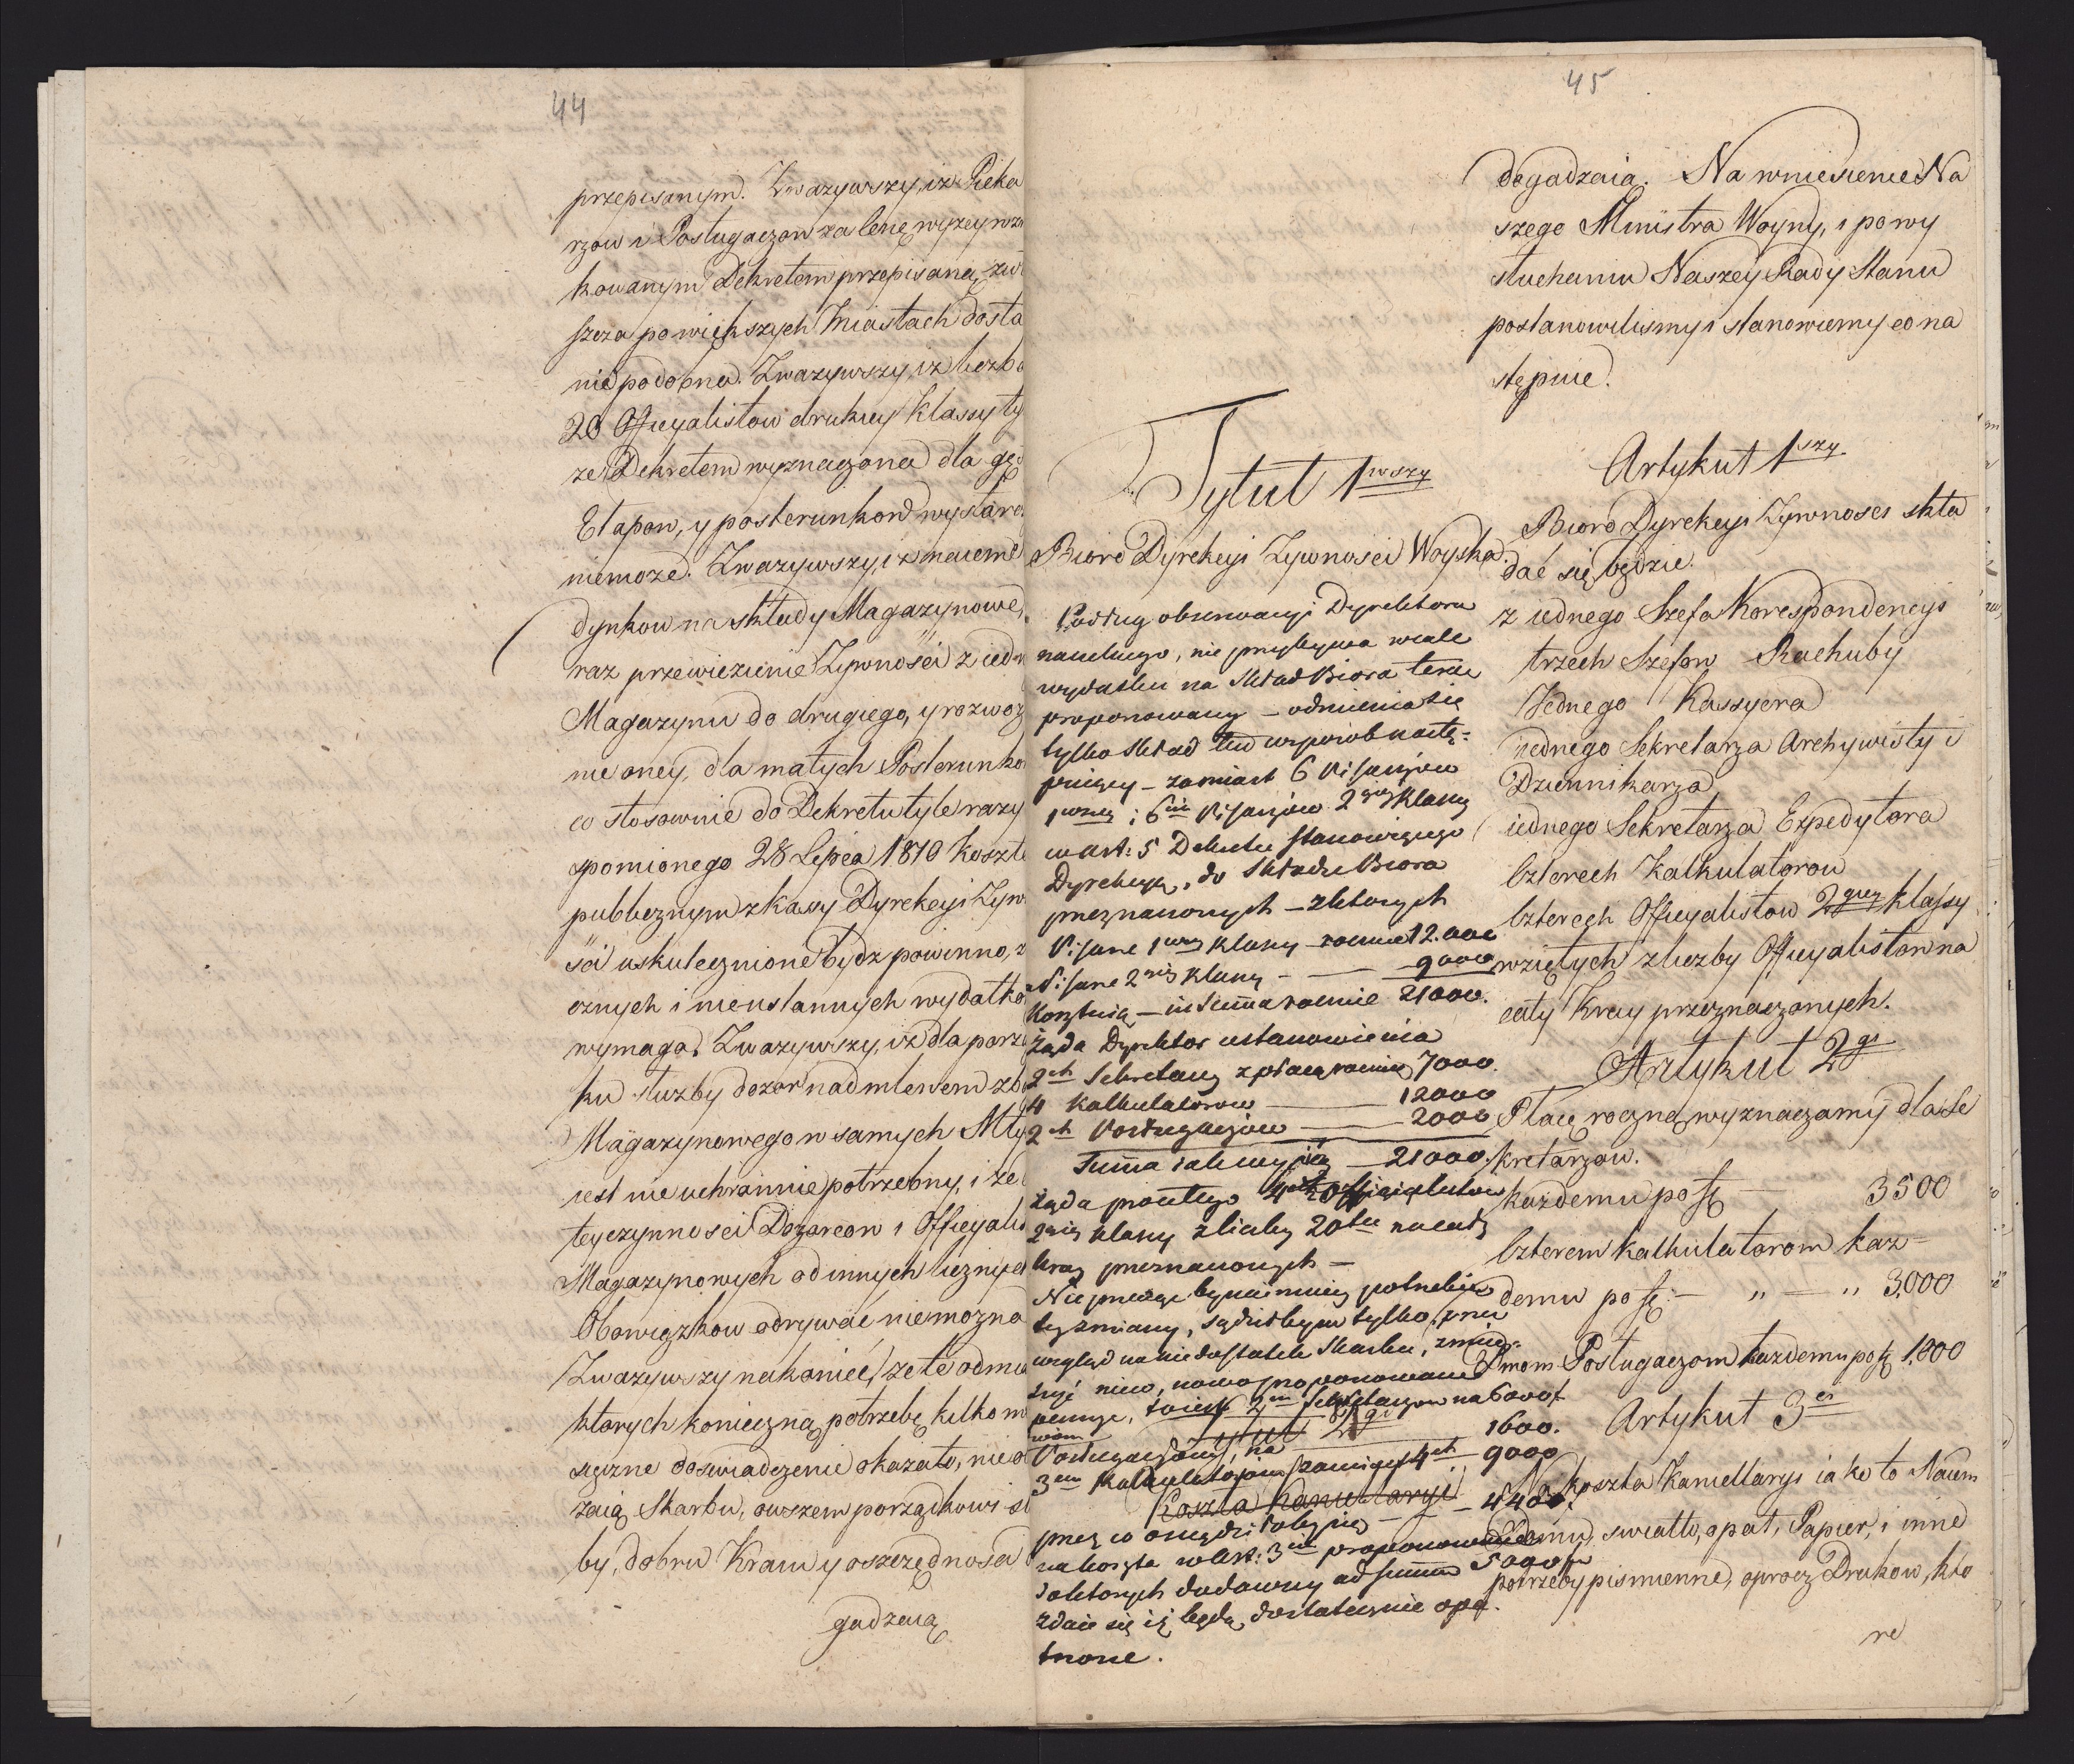 44
przepisanym. Zwazywszy, iz Pieka
rzow i Posługaczow za lenę wyzey wzm
kowanym Dekretem przepisaną, zwł
szcza po większych Miastach dosta
niepodobna. Zwazywszy, iz liczba
20 Officyalistow drukiey Klassy ty
ze Dekretem wyznaczona dla gę
Etapow, y posterunkow wystarc
niemoze. Zwazywszy, iz
dynkow na składy Magazynowe,
raz przewiezienie Zywnosci z iedn
Magazynu do drugiego, y rozwoz
nie oney, dla małych Posterunko
co stosownie do Dekretu tyle razy
spomionego 28 Lipca 1810 koszte
publicznym z kassy Dyrekcyi Zyw
ści uskutecznione bydz powinno, z
cznych i nieustannych wydatko
wymaga. Zwazywszy, iz dla porzą
ku słuzby dozor nad mlewem zbo
Magazynowego w samych Mły
iest nieuchrannie potrzebny, i ze
tey czynnosci Dozorcow i Officyalis
Magazynowych od innych licznych
Obowiązkow odrywać niemozna
Zwazywszy nakoniec, ze te odmia
ktorych konieczną potrzebę kilko m
sięczne doswiadczenie okazało, nie o
zaią Skarbu, owszem porządkowi sł
by, dobru Kraiu y oszczędnosci
gadzaią
45
dogadzaia. Na wniesienie Na
szego Ministra Woyny, i po wy
słuchaniu Naszey Rady Stanu
postanowilismy i stanowiemy co na
stępuie.
Tytuł 1wszy
Biuro Dyrekcyi Zywnosci Woyska.
Podług obserwacyi Dyrektora
naczelnego, nie przybywa wcale
wydatku na Skład Biora teraz
proponowany – odmienia się
tylko skład ten w sposób nastę=
puiący – zamiast 6 Pisarzow
1wszey i 6ciu Pisarzow 2giey Klassy
w art: 5 Dekretu stanowiącego
Dyrekcyą, do składu Biora
przeznaczonych – z ktorych
Pisarze 1wszey Klassy rocznie 12.000
Pisarze 2giey Klassy – 9000
Kosztuią – in Summa rocznie 21000.
Ząda Dyrektor ustanowienia
2ch Sekretarzy z płacą roczną 7000.
4 Kalkulatorow – 12000
2ch Posługaczow – 2000
Summa takze czyni – 21000.
Ząda procz tego 4ch Officialistow
2giey Klassy z liczby 20tu na cały
Kray przeznaczonych –
Nie przeczę bynaymniey potrzebie
tey zmiany, sądziłbym tylko przez
wzgląd na niedostatek Skarbu, zmniey=
szyć nieco, nowo proponowane
pensye, to iest 2m Sekretarzom na 6000 f
Posługaczom, na – 1600.
3em Kalkulatorom zamiast 4ch – 9000
Koszta Kancellaryi – 4400.
przez co oszczędzi
na koszta w Art: 3cim proponowane
do ktorych dodawszy ad Summam 5000 f
zdaie się iż będą dostatecznie opa
trzone.
Artykuł 1szy
Biuro Dyrekcyi Zywnosci skła
dać się będzie.
z iednego Szefa Korespondencyi
trzech Szefow Rachuby
Jednego Kassyera
iednego Sekretarza Archywisty i
Dziennikarza
iednego Sekretarza Expedytora
Czterech Kalkulatorow
Czterech Officyalistow 2giey klassy
wziętych z liczby Officyalistow na
cały Kray przeznaczonych.
Artykuł 2gi
Płacę roczną wyznaczamy dla Se
kretarzow.
kazdemu po f – 3500
Czterem Kalkulatorom kaz=
demu po f: – " – " 3,000
Dwom Posługaczom kazdemu po f 1,000
Artykuł 3ci
Na koszta Kancellaryi iako to Naiem
Domu, swiatło, opał, Papier, i inne
potrzeby pismienne, oprocz Drukow, kto
re